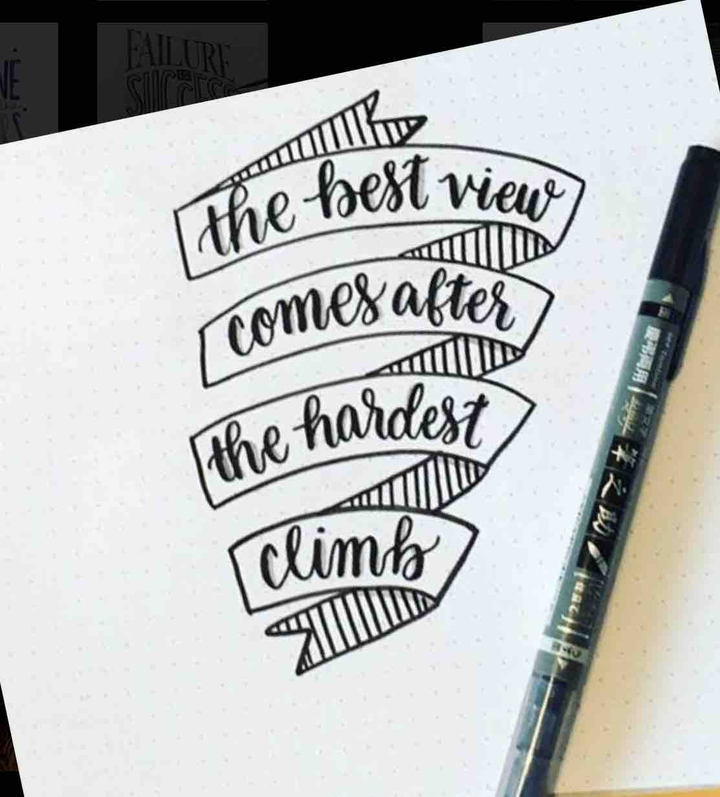 FAILURE
SUCCESS
the best view
comes after
the hardest
climb
筆之助